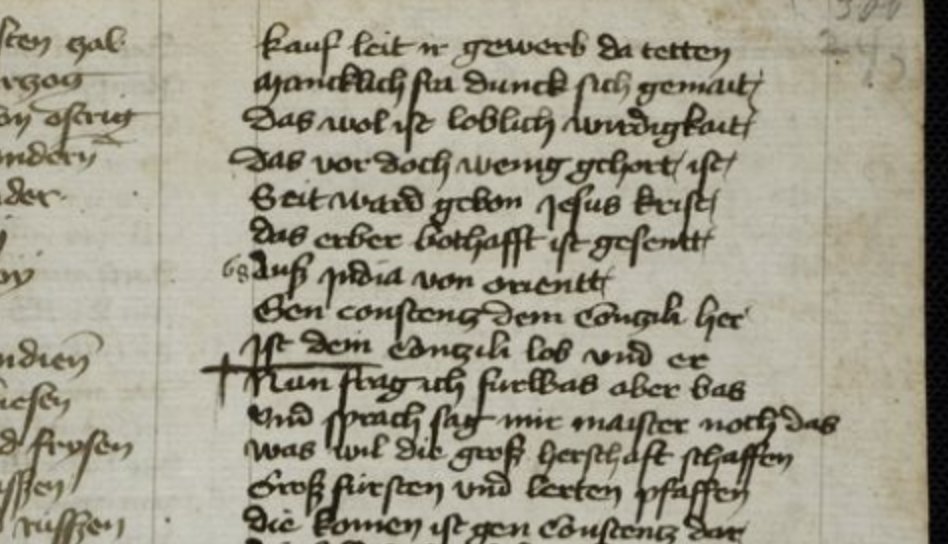 sten gab
erzog
on ostrig
andern
der

ndien
iesen
d frysen
ussen
russzen
kauf leit ir gewerb da tetten
Mancklich frŭ dunck sich gemait
Das wol ist loblich wirdigkait
Das vor doch wenig gehort ist
Seit ward geborn Jesus krist
das erber bothafft ist gesentt
68 Auß India von orientt
Gen constentz dem Contzili her
Ist dem Contzili lob vnd er
Nun frag ich furbas aber bas
Vnd sprach sag mir maister noch das
was wil die groß herschaft schaffen
Groß fürsten vnd lerten pfaffen
die komen ist gen Constentz dar